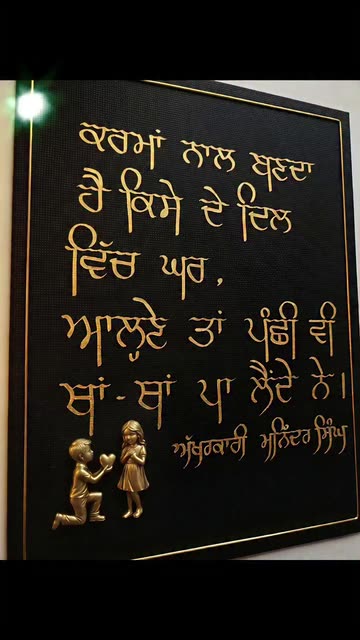 ਕਰਮਾਂ ਨਾਲ ਬਣਦਾ
ਹੈ ਕਿਸੇ ਦੇ ਦਿਲ
ਵਿੱਚ ਘਰ,
ਆਲ੍ਹਣੇ ਤਾਂ ਪੰਛੀ ਵੀ
ਥਾਂ-ਥਾਂ ਪਾ ਲੈਂਦੇ ਨੇ।
ਅੱਖਰਕਾਰੀ ਮਨਿੰਦਰ ਸਿੰਘ